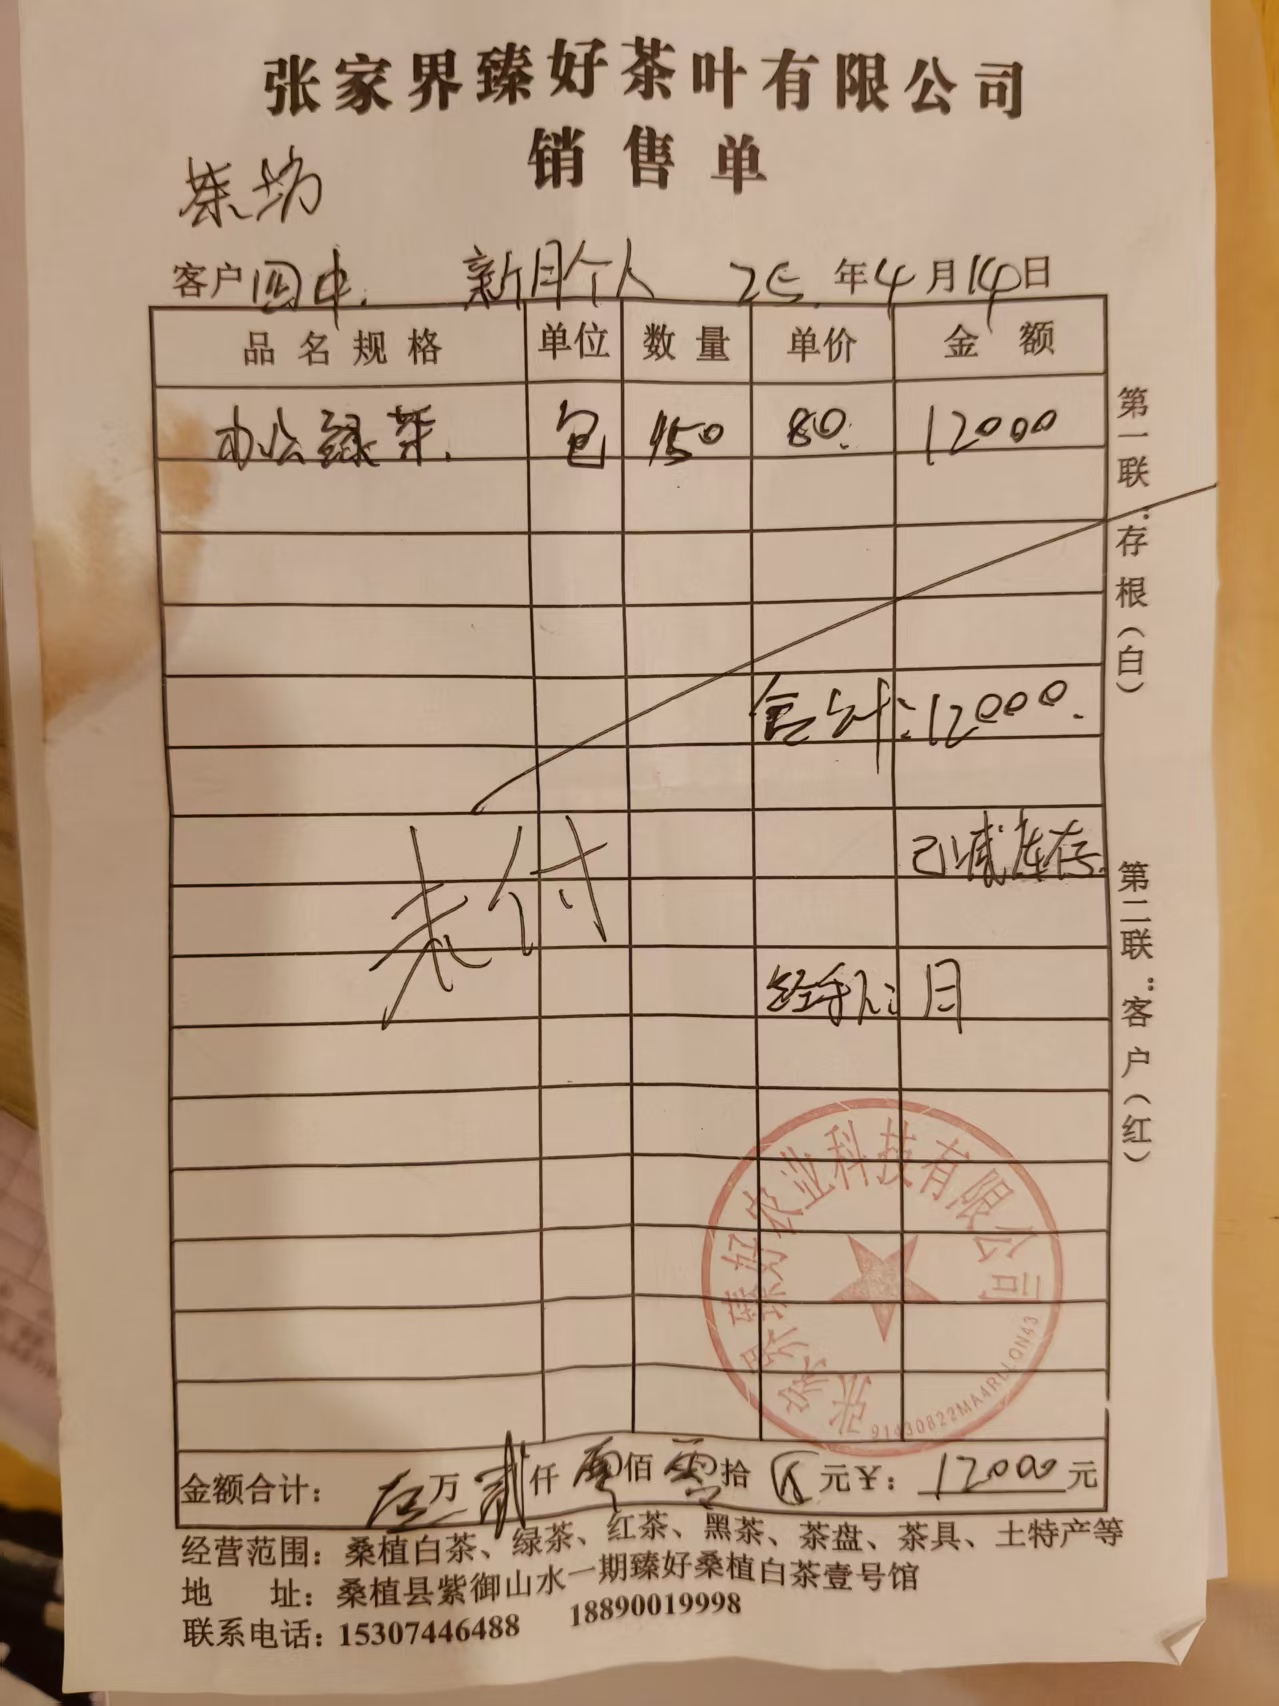 张家界臻好茶叶有限公司
销售单
茶坊
客户 四中. 新月个人 25年4月14日
品名规格 单位 数量 单价 金额
办公绿茶. 包 150 80. 12000
合计:12000.
未付
已减库存.
经手人: 月
张家界臻好农业科技有限公司
91430822MA4RLLQN43
金额合计: 万 贰仟 零佰 零拾 元¥: 12000元
经营范围: 桑植白茶、绿茶、红茶、黑茶、茶盘、茶具、土特产等
地 址: 桑植县紫御山水一期臻好桑植白茶壹号馆
联系电话: 15307446488 18890019998
第一联:存根(白)
第二联:客户(红)